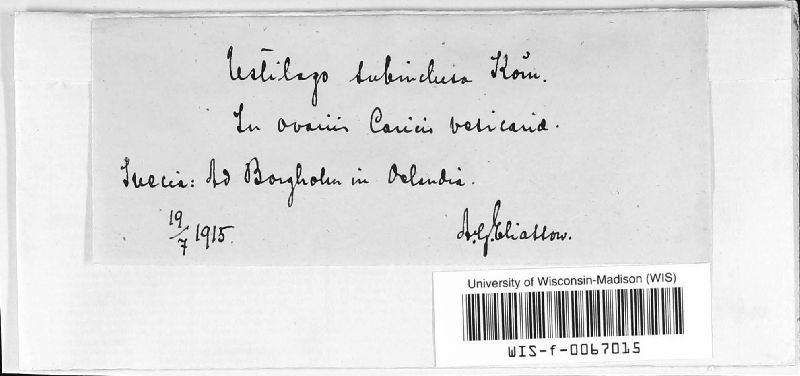 Ustilago subinclusa Körn.
In ovariis Caricis vesicariæ.
Suecia: Ad Borgholm in Oelandia.
19/7 1915.
A.G. Eliasson.
University of Wisconsin-Madison (WIS)
WIS-f-0067015